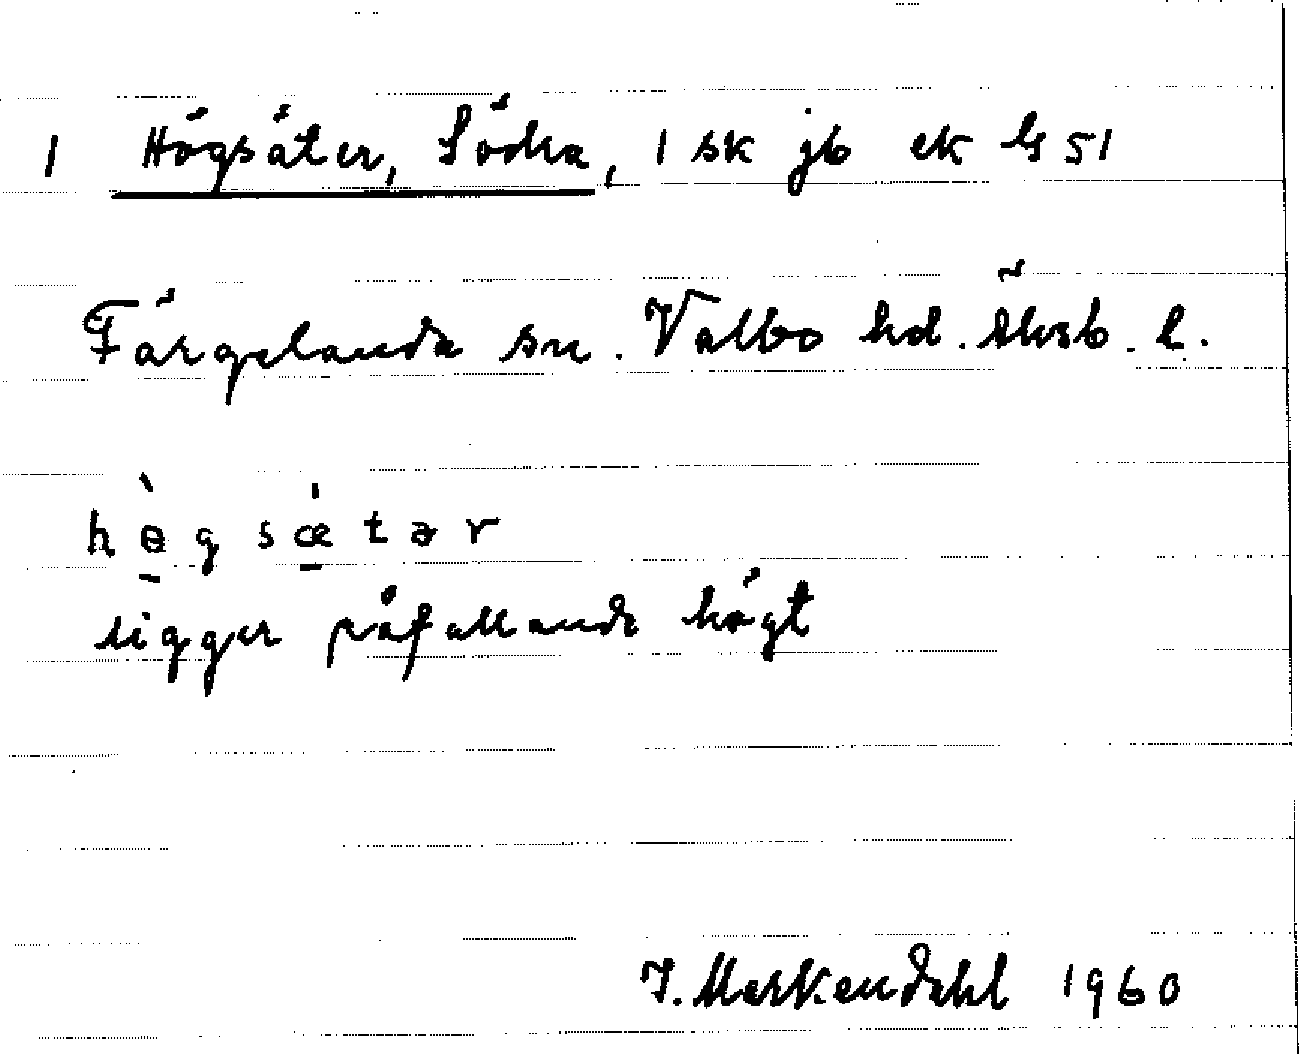 1 Högsäter, Södra, 1 sk jb ek G 51
Färgelanda sn. Valbo hd. Älvsb. l.
hɵ̀gsǽtər
ligger påfallande högt
J. Markendahl 1960